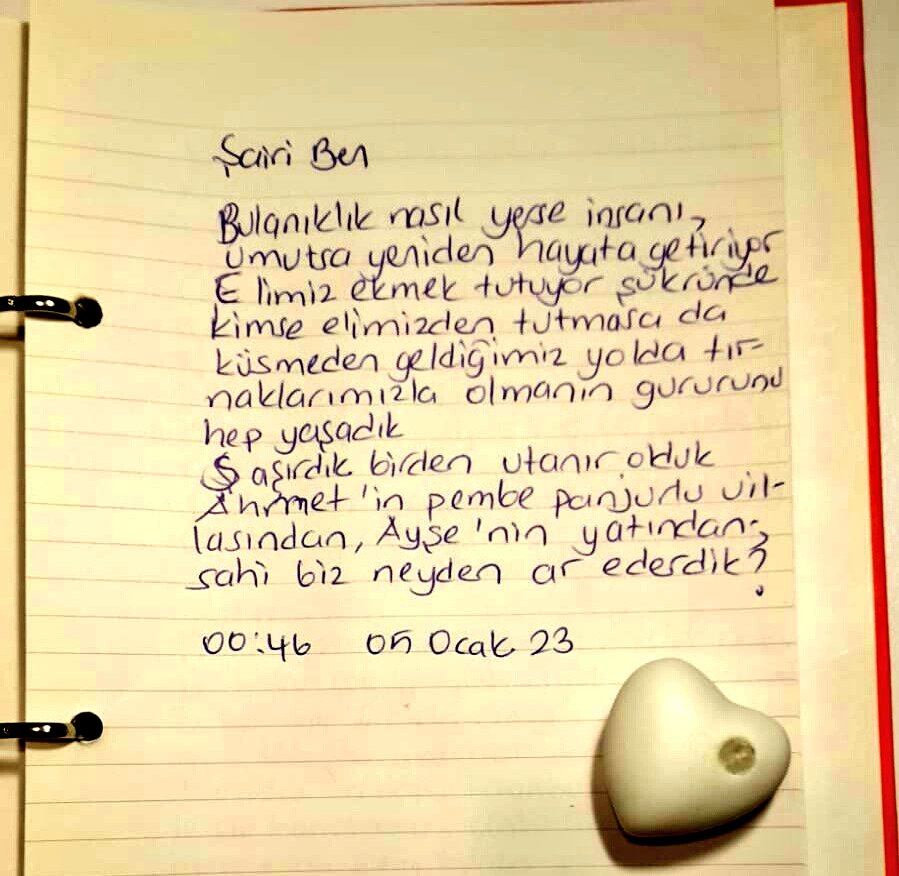 Şairi Ben
Bulanıklık nasıl yerse insanı,
umutsa yeniden hayata getiriyor
Elimiz ekmek tutuyor şükründe
kimse elimizden tutmasa da
küsmeden geldiğimiz yolda tır-
naklarımızla olmanın gururunu
hep yaşadık
Şaşırdık birden utanır olduk
Ahmet'in pembe panjurlu vil-
lasından, Ayşe'nin yatından,
sahi biz neyden ar ederdik?
00:46 05 Ocak 23